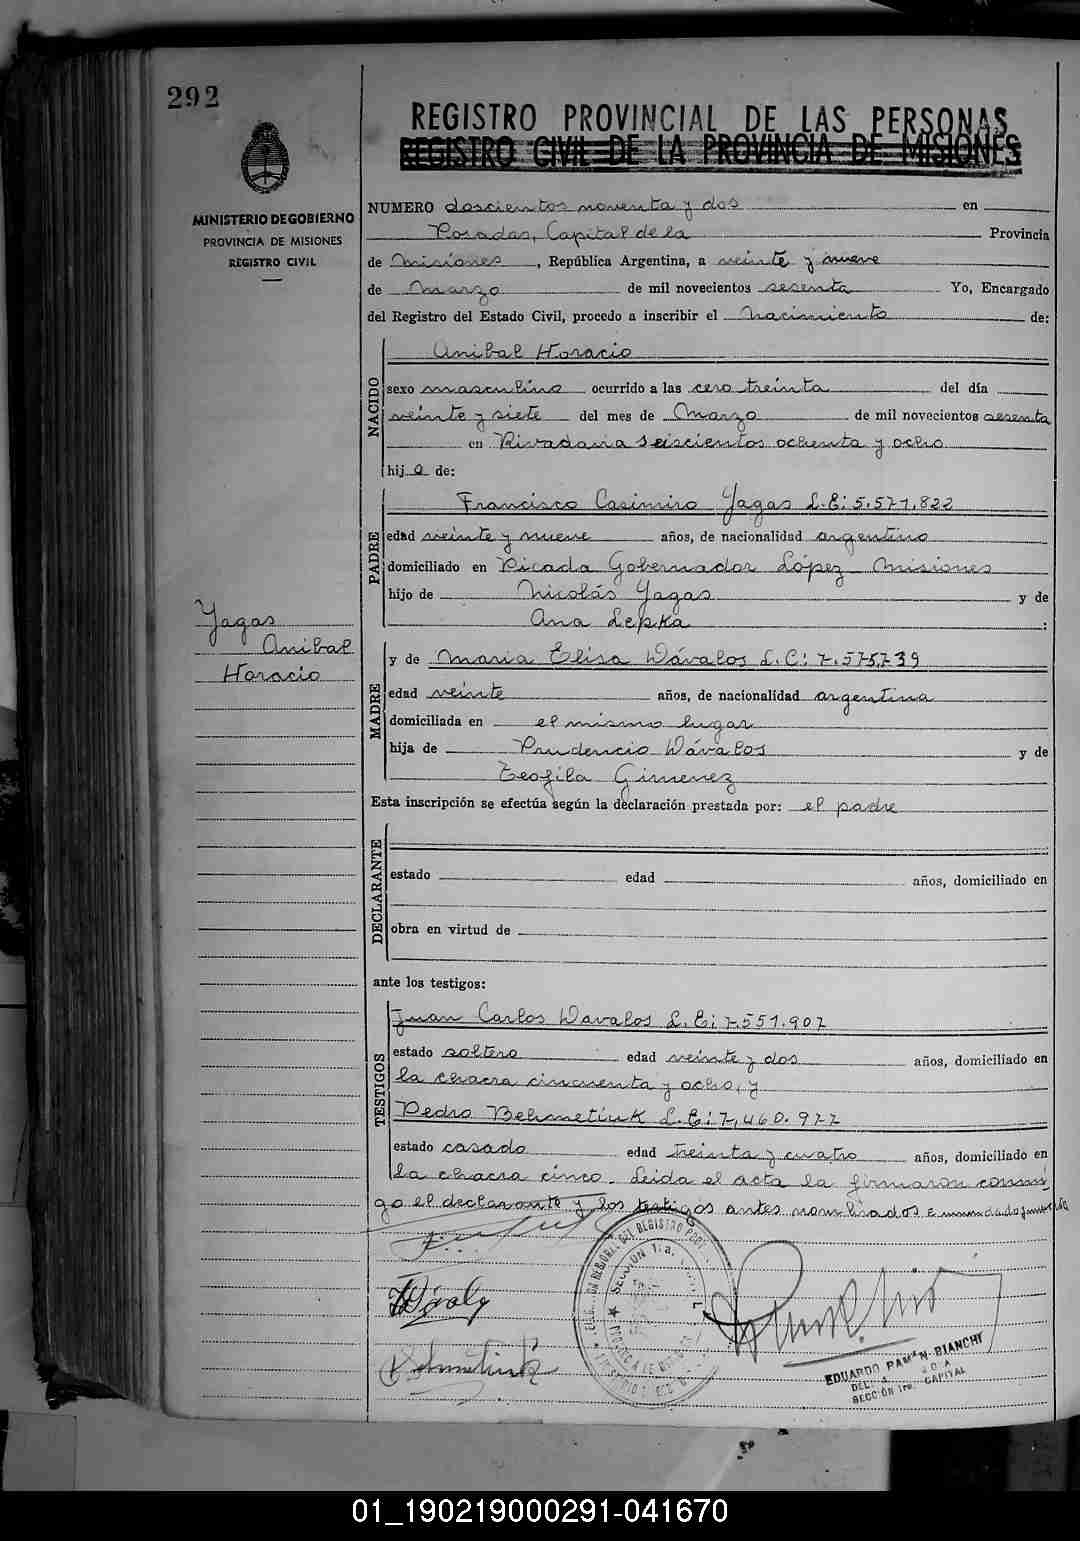 292
REGISTRO PROVINCIAL DE LAS PERSONAS
REGISTRO CIVIL DE LA PROVINCIA DE MISIONES
MINISTERIO DE GOBIERNO
PROVINCIA DE MISIONES
REGISTRO CIVIL
NUMERO doscientos noventa y dos en
Posadas, Capital de la Provincia
de Misiones, República Argentina, a veinte y nueve
de Marzo de mil novecientos sesenta Yo, Encargado
del Registro del Estado Civil, procedo a inscribir el Nacimiento de:
NACIDO
Anibal Horacio
sexo masculino ocurrido a las cero treinta del día
veinte y siete del mes de Marzo de mil novecientos sesenta
en Rivadavia seiscientos ochenta y ocho
hijo de:
PADRE
Francisco Casimiro Yagas L.E: 5.571.822
edad veinte y nueve años, de nacionalidad argentino
domiciliado en Picada Gobernador López Misiones
hijo de Nicolás Yagas y de
Ana Lepka
Yagas
Anibal
Horacio
MADRE
y de Maria Elisa Dávalos L.C: 7.575.739
edad veinte años, de nacionalidad argentina
domiciliada en el mismo lugar
hija de Prudencio Dávalos y de
Teofila Gimenez
Esta inscripción se efectúa según la declaración prestada por: el padre
DECLARANTE
estado edad años, domiciliado en
obra en virtud de
ante los testigos:
TESTIGOS
Juan Carlos Davalos L.E: 7.551.907
estado soltero edad veinte y dos años, domiciliado en
la chacra cincuenta y ocho, y
Pedro Behmetiuk L.E: 7.460.977
estado casado edad treinta y cuatro años, domiciliado en
la chacra cinco. Leida el acta la firmaron conmi
go el declarante y los testigos antes nombrados
EDUARDO RAMON BIANCHI
SECCIÓN 1ra. CAPITAL
01_190219000291-041670